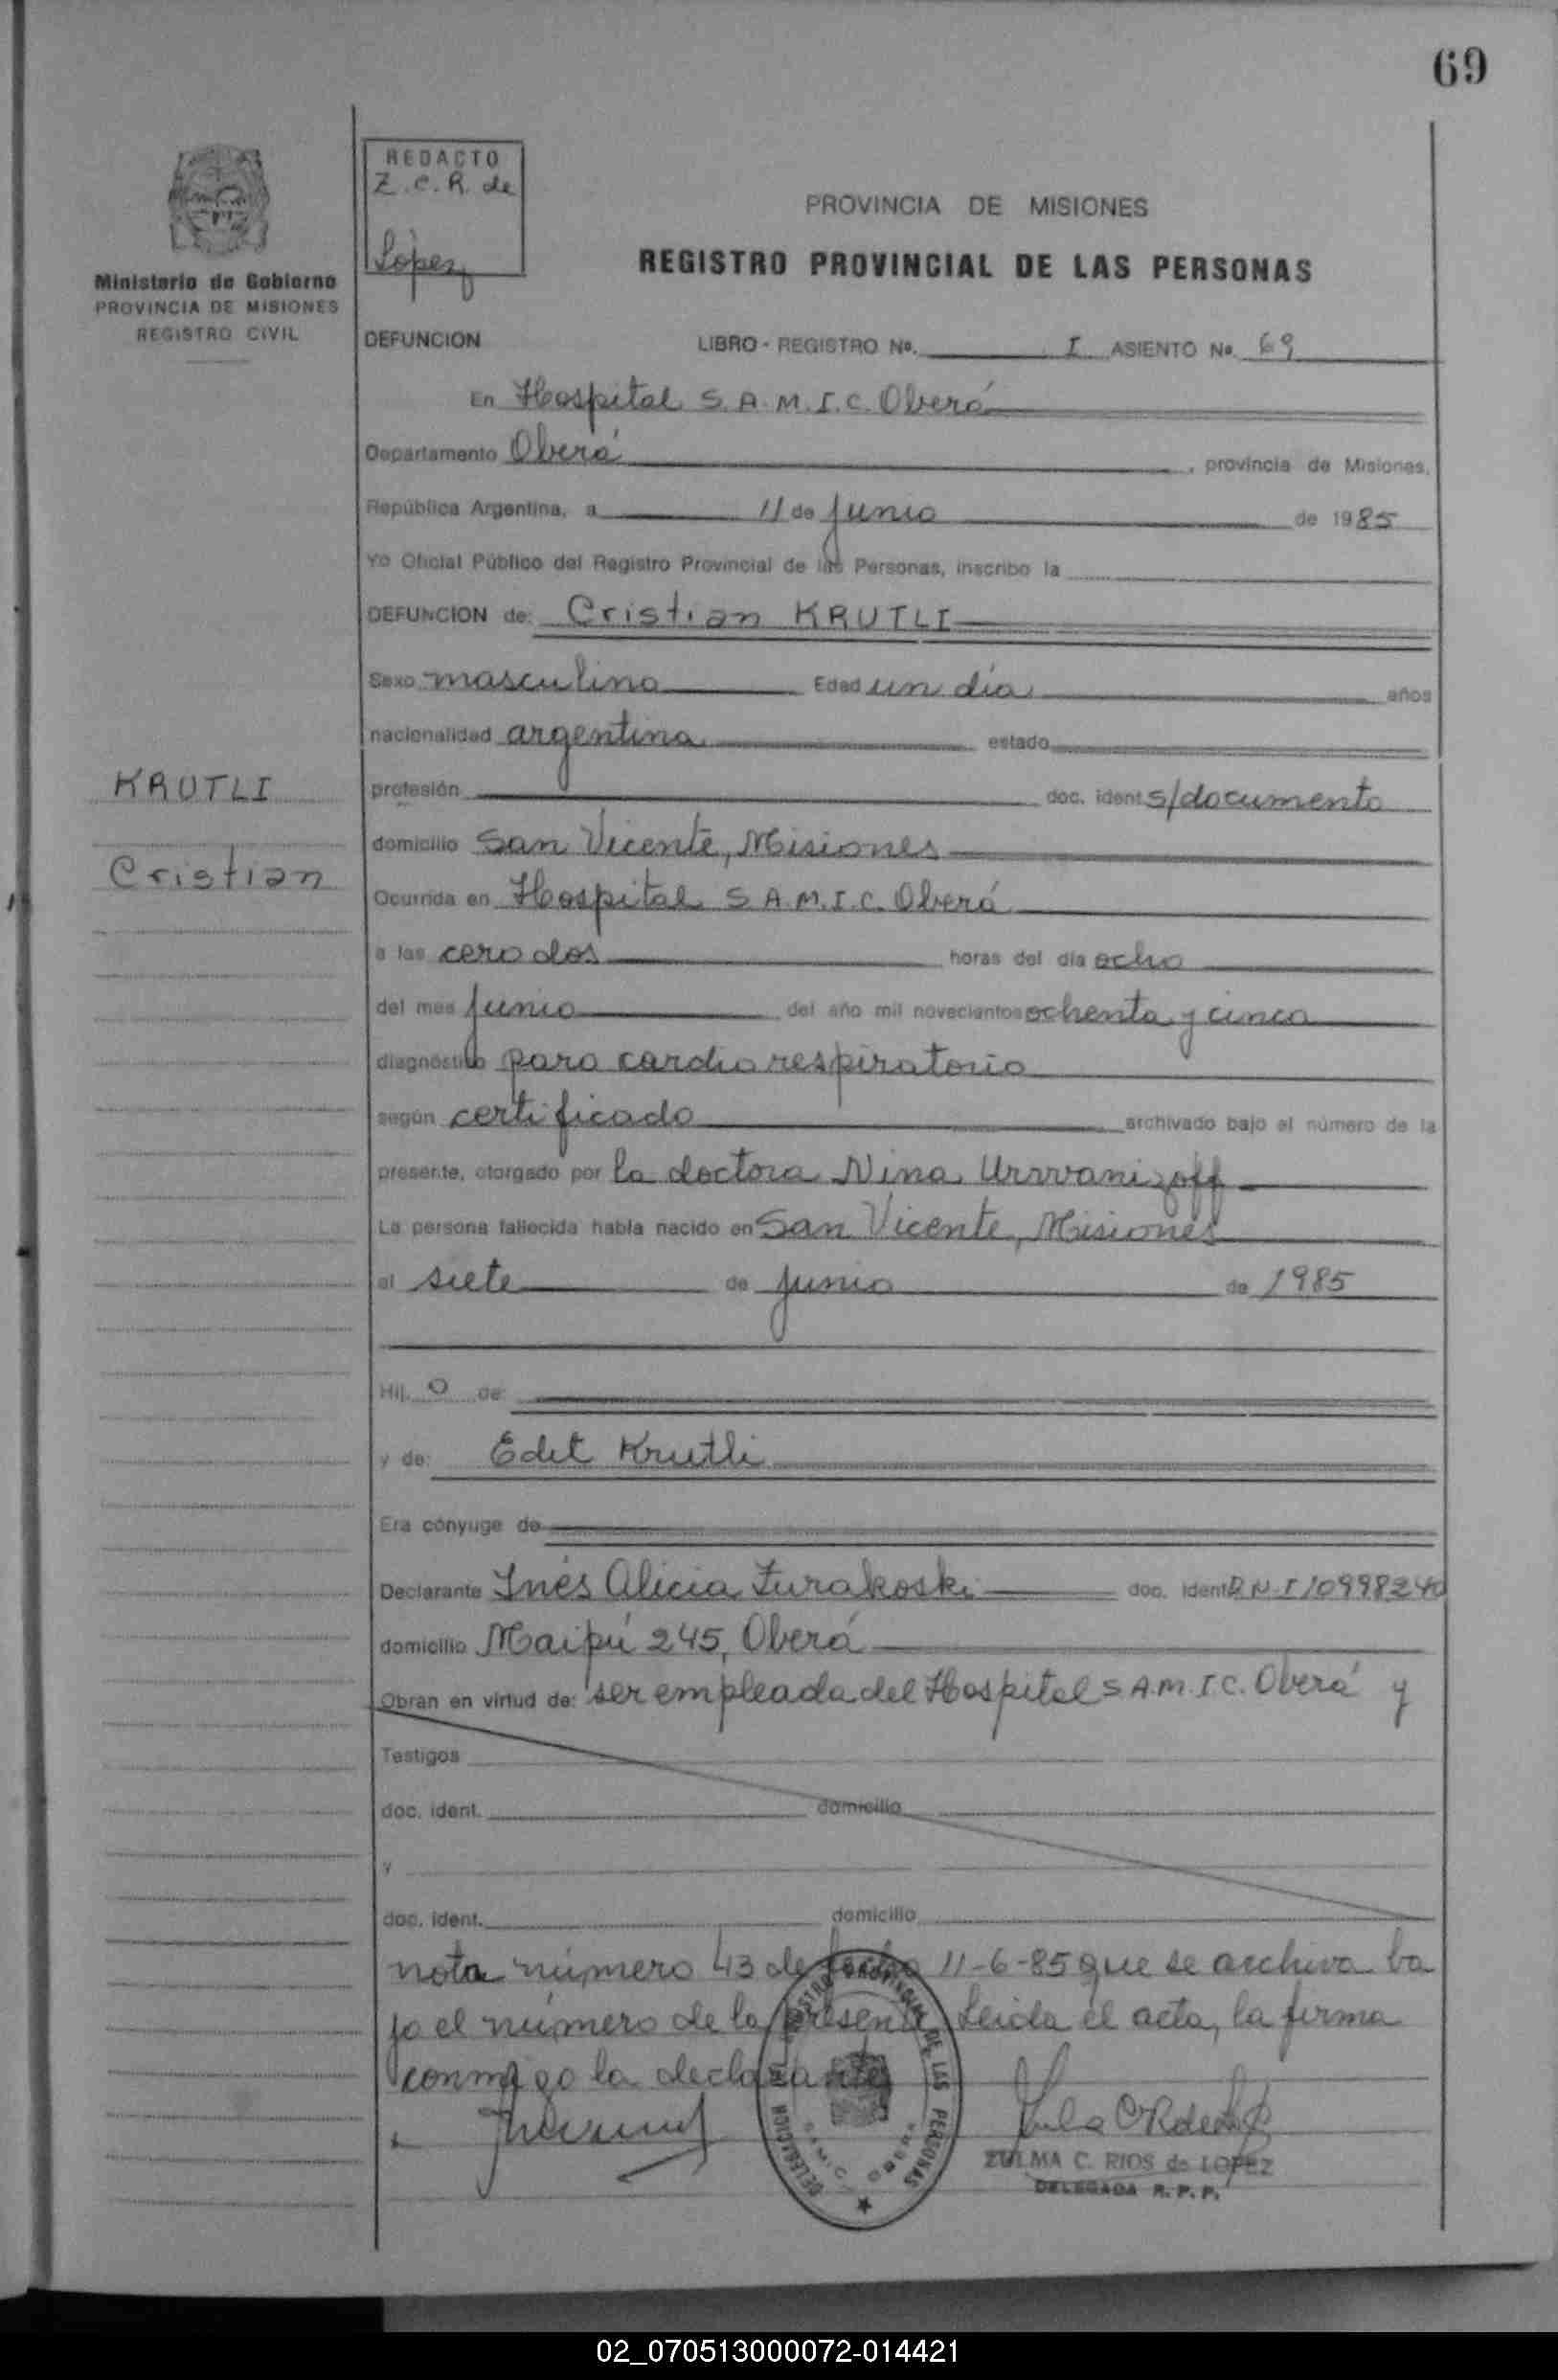 69
REDACTO
Z.C.R. de
López
Ministerio de Gobierno
PROVINCIA DE MISIONES
REGISTRO CIVIL
PROVINCIA DE MISIONES
REGISTRO PROVINCIAL DE LAS PERSONAS
DEFUNCION LIBRO - REGISTRO Nº. I ASIENTO Nº. 69
En Hospital S.A.M.I.C. Oberá
Departamento Oberá, provincia de Misiones,
República Argentina, a 11 de junio de 1985
Yo Oficial Público del Registro Provincial de las Personas, inscribo la
DEFUNCION de: Cristian KRUTLI
Sexo masculino Edad un día años
nacionalidad argentina estado
KRUTLI
Cristian
profesión doc. ident. s/documento
domicilio San Vicente, Misiones
Ocurrida en Hospital S.A.M.I.C. Oberá
a las cero dos horas del día ocho
del mes junio del año mil novecientos ochenta y cinco
diagnóstico paro cardio respiratorio
según certificado archivado bajo el número de la
presente, otorgado por la doctora Nina
La persona fallecida había nacido en San Vicente, Misiones
el siete de junio de 1985
Hij o de:
y de: Edit Krutli
Era cónyuge de
Declarante Inés Alicia Zurakoski doc. ident. D.N.I 10998240
domicilio Maipú 245, Oberá
Obran en virtud de: ser empleada del Hospital S.A.M.I.C. Oberá y
Testigos
doc. ident. domicilio
y
doc. ident. domicilio
nota número 43 de fecha 11-6-85 que se archiva ba
jo el número de la presente. Leída el acta, la firma
conmigo la declarante
REGISTRO PROVINCIAL DE LAS PERSONAS
DELEGACION
S.A.M.I.C. OBERA
ZULMA C. RIOS de LOPEZ
DELEGADA R. P. P.
02_070513000072-014421